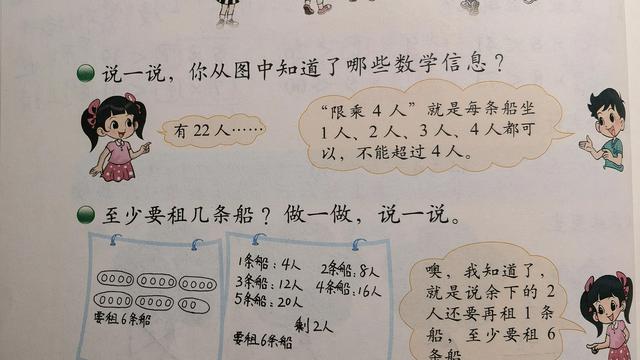 说一说，你从图中知道了哪些数学信息？
有 22 人……
“限乘 4 人”就是每条船坐
1 人、2 人、3 人、4 人都可
以，不能超过 4 人。
至少要租几条船？做一做，说一说。
要租6条船
1条船：4人 2条船：8人
3条船：12人 4条船：16人
5条船：20人
剩2人
要租6条船
噢，我知道了，
就是说余下的 2
人还要再租 1 条
船，至少要租 6
条船